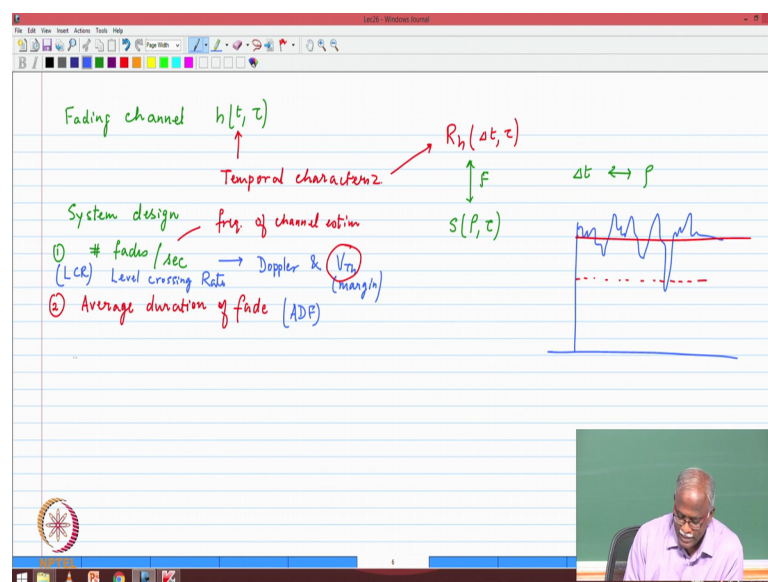 Lec26 - Windows Journal
File Edit View Insert Actions Tools Help
Page Width
B I
Fading channel h(t, τ)
Rh(Δt, τ)
Temporal characteriz.
F
Δt ↔ ρ
S(ρ, τ)
System design
freq. of channel estim
① # fades/sec → Doppler & VTh
(LCR) Level crossing Rate (margin)
② Average duration of fade (ADF)
NPTEL
6